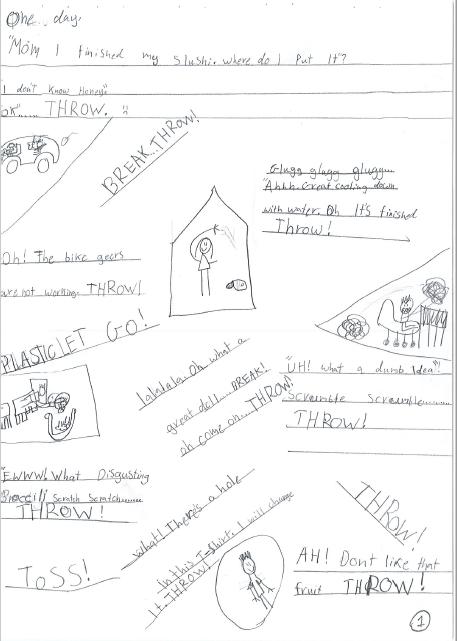 One day.
"Mom I finished my slushi. where do I Put It"?
I don't Know Honey."
OK"...... THROW. "
BREAK...THROW!
Glugg glugg glugg....
"Ahhh. Great cooling down
with water. Oh It's finished
Throw!
Oh! The bike gears
are not working. THROW!
PLASTIC LET GO!
lalalala Oh what a
great doll.... BREAK!
oh come on... THROW!
"UH! what a dumb Idea"!
Scramble Scramble........
THROW!
"EWWW! What Disgusting
Broccili Scratch Scratch.......
THROW!
what! There's a hole
In this T-shirt. I will change
It. THROW!
THROW!
TOSS!
AH! Dont like that
fruit THROW!
1